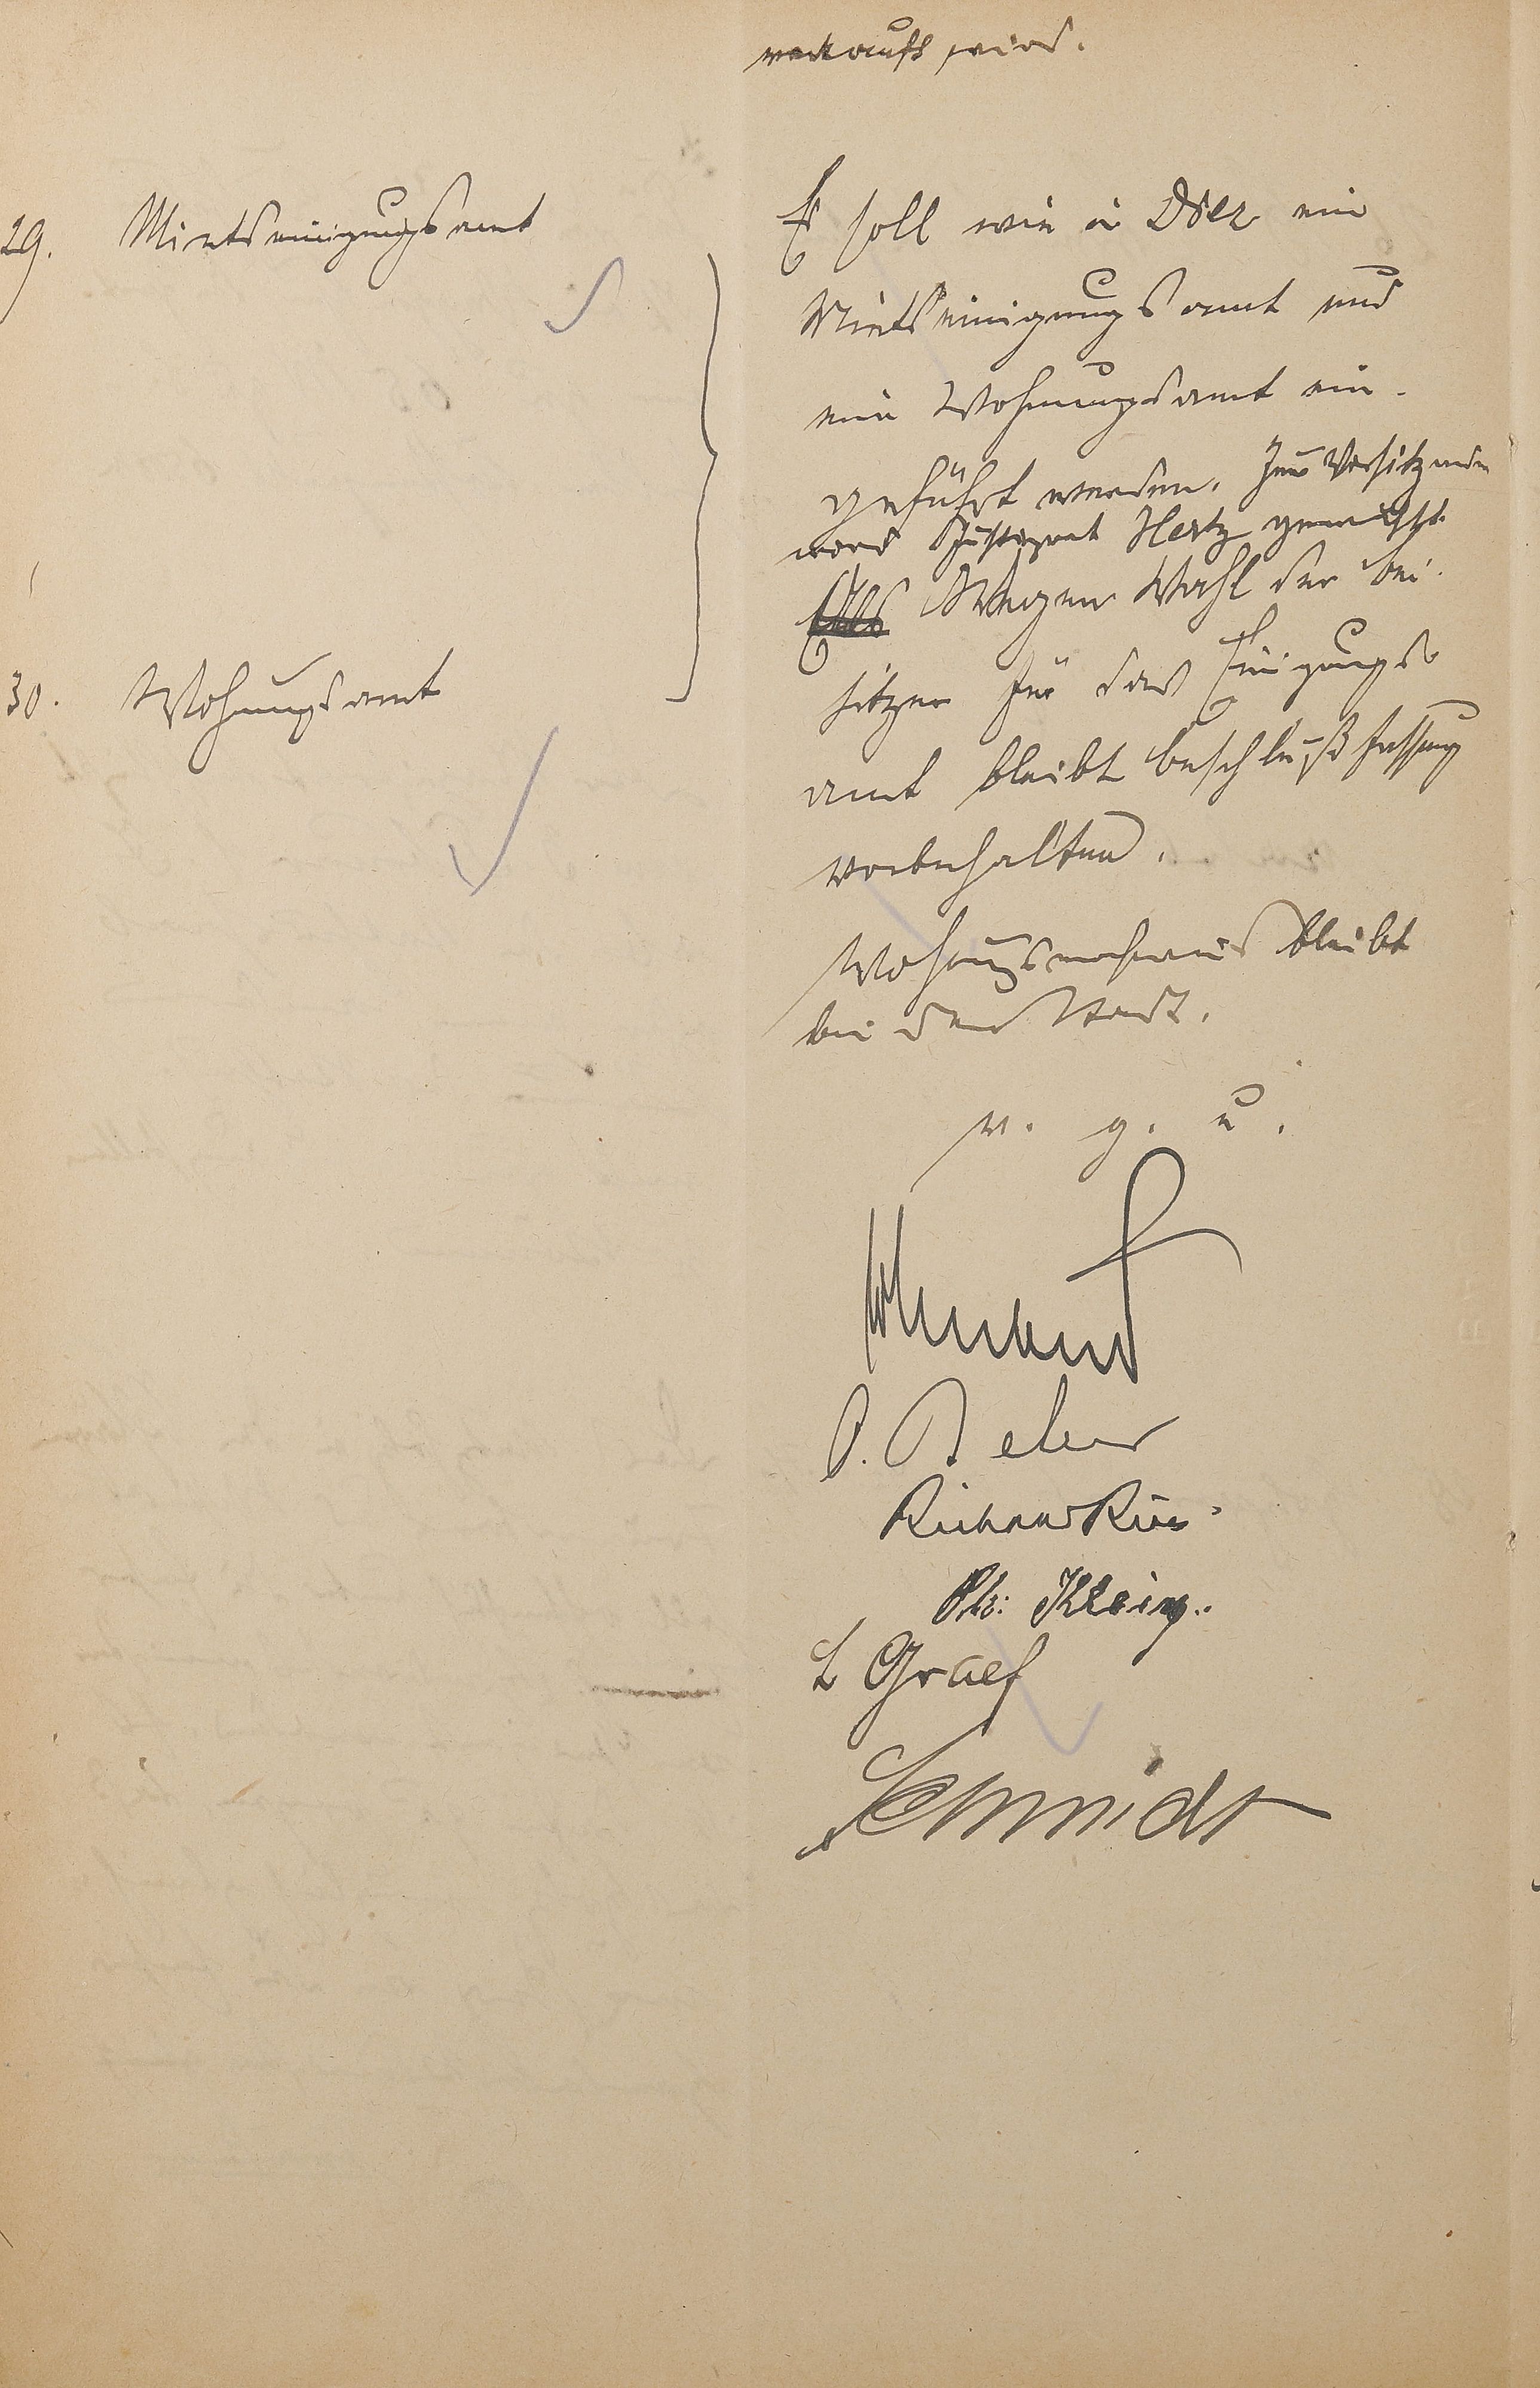 verkauft wird.
29. Mietseinigungsamt
Es soll wie in Diez ein
Mietseinigungsamt und
ein Wohnungsamt ein-
geführt werden. Zum Vorsitzenden
wird Justizrat Hertz gewählt.
Wegen Wahl der Bei-
sitzer für das Einigungs-
amt bleibt Beschlußfassung
vorbehalten.
30. Wohnungsamt
Wohnungsnachweis bleibt
bei der Stadt.
v. g. u.
Richard
Ph: Klein.
L Graef
Schmidt